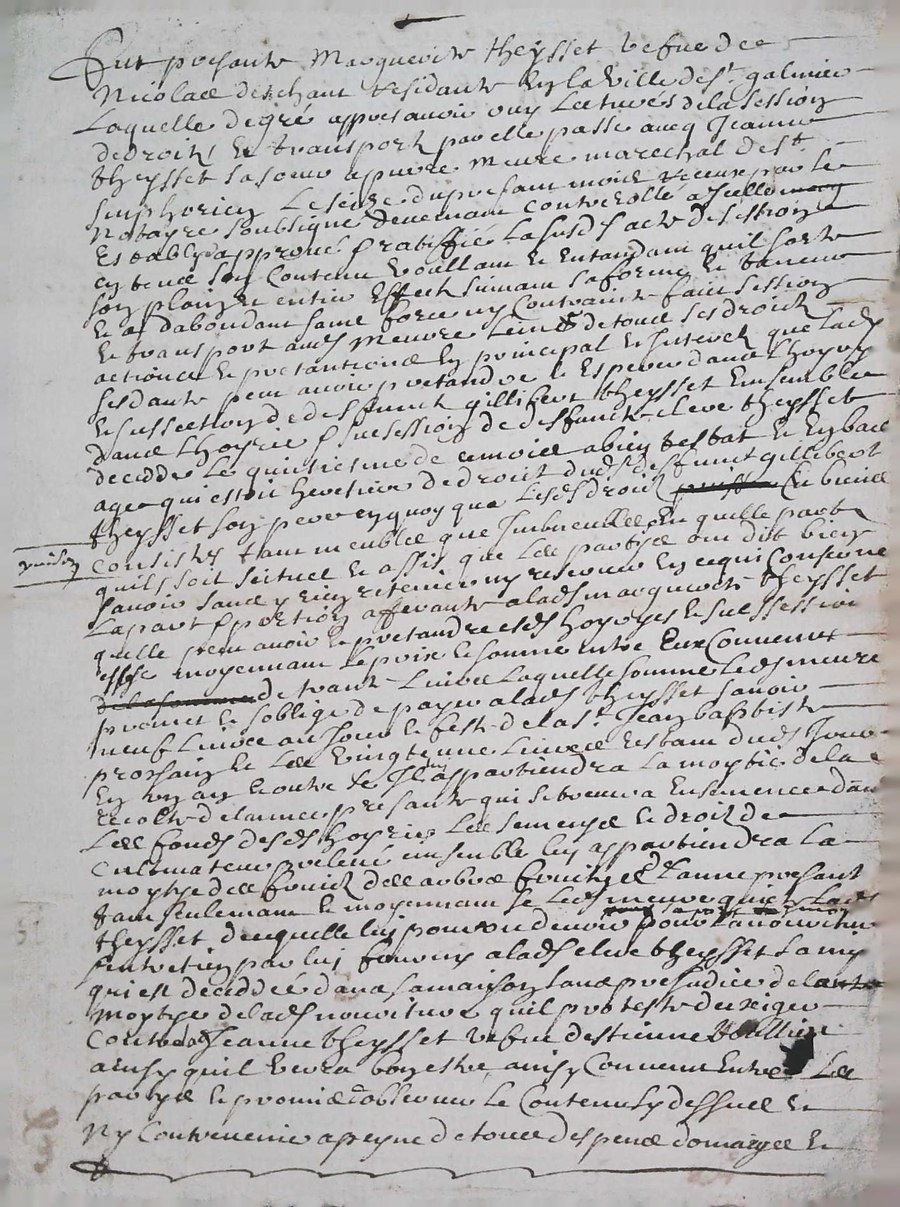 Fut presante Marguerite theysset vefue de
Nicolas deschant residante En la Ville de st galmier
Laquelle de gré appres avoir ouy Lectures de la session
de droitz Et transport par elle passé aueq Jeanne
theysset sa soeur a pierre Meure marechal de st
simphorien Le seize du presant mois receue par le
Notayre soubsigné deuemant controllé a Icelle
Establi approué & ratiffié la susds acte de session
en tout son Contenu Voullant Et Entandant quil sorte
son plain Et entier Effect suivant sa forme Et teneur
Et dabondant sans force ny Contrainte faict session
Et transport auds Meure de tous ses droitz
actions Et pretantions En principal Et Interest que lads
peut avoir pretandre Et Esperer dans Lhoyrie
Et sussession de deffunct gillibert theysset Ensemble
dans Lhoyrie & sucession de deffuncte theysset
decedée Le quinziesme de ce mois ab intestat Et En bas
age qui estoit heretiere de droit duds deffunct gillibert
theysset son pere en quoy que Lesds droitz En biens
puissent
Consister tant meubles que Immeubles En quelle part
quils soit scituez Et assis que Les partyes ont dit bien
scavoir sans y rien retenir ny reserver En ce qui Conserne
La part & portion afferante a lads marguerite theysset
quelle peut avoir Et pretandre esds hoyryes Et sussession
moyennant Le prix Et somme entre Eux Convenue
de trante Livres Laquelle somme Leds meure
promet Et soblige de payer a lads theysset scavoir
neuf Livres au Jour Et feste de la st Jean baptiste
prochain Et Les Vingt une Livres restant duds Jour
En un an Et outre ce Il luy appartiendra La moytié de la
recolte de lannee presante qui se trouvera Ensemencé dans
Les fonds desds hoyries Les semances Et droit de
Cultivateur prelevé ensemble luy appartiendra La
moytye des fruitz des arbres fruitiers de Lanne presant
tant seulemant Et moyennant ce Leds meure
theysset de quelle luy pourroit devoir pour La nouriture
& entretien par luy fourny a lads theysset sa
qui est decedée dans sa maison sans prejudice de
moytye de lads nouriture quil proteste dexiger
Contre Jeanne theysset vefue destienne
ainsy quil verra bon estre, ainsy Convenu Entre Les
partyes Et promis observer Le Contenu cy dessus Et
Ny Contrevenir a peyne de tous despens domages Et